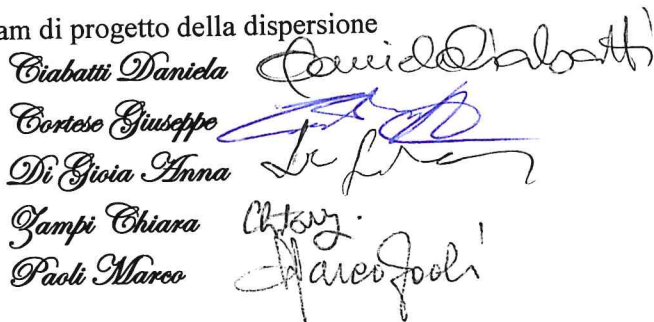 am di progetto della dispersione
Ciabatti Daniela Daniela Ciabatti
Cortese Giuseppe
Di Gioia Anna
Zampi Chiara
Paoli Marco Marco Paoli